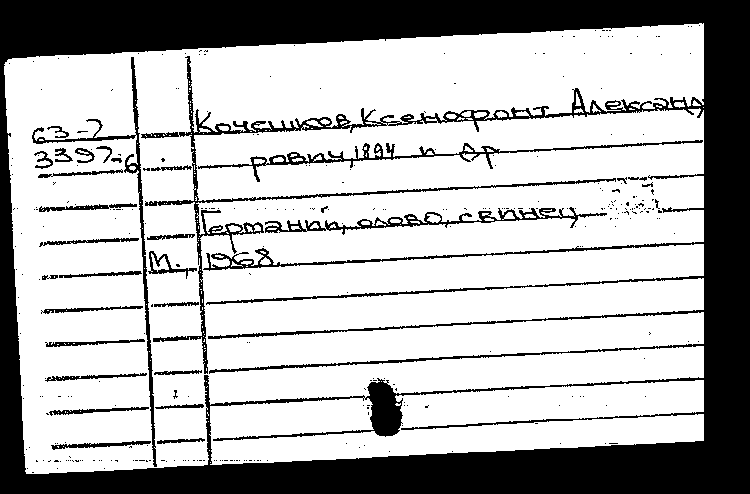 63-7
3397-6
Кочешков, Ксенофонт Александ
рович, 1894 и др
Германий, олово, свинец
М., 1968.